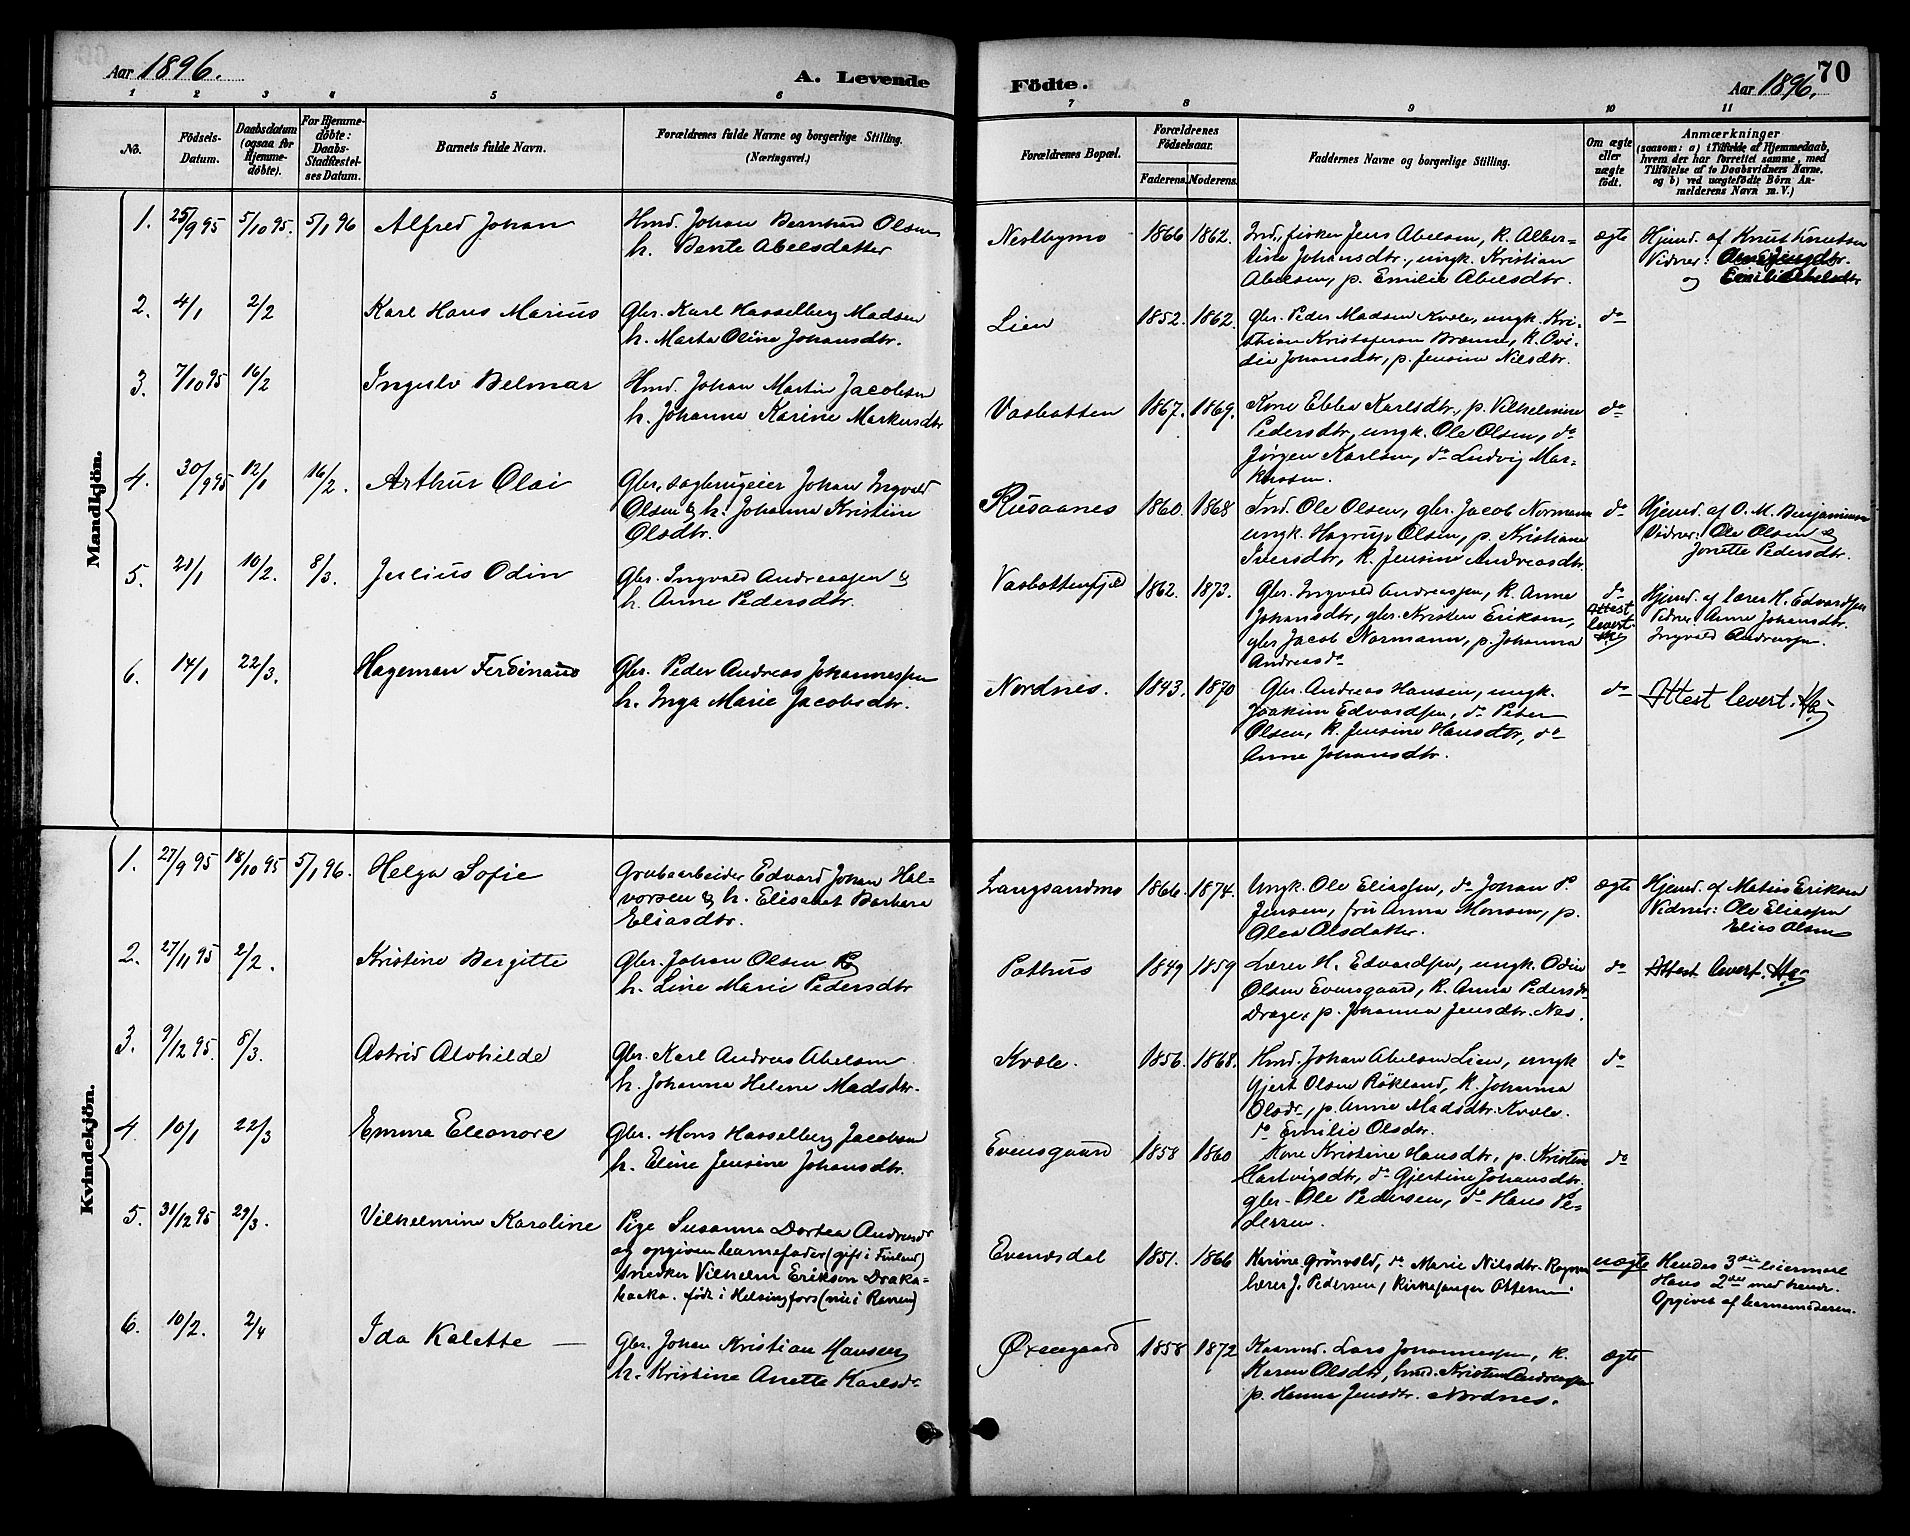 Aar 1896.
A. Levende
Fødte.
Aar 1896.
70
1 2 3 4 5 6
7 8 9 10 11
No.
Fødsels-Datum.
Daabsdatum (ogsaa for Hjemmedøbte).
For Hjemmedøbte: Daabs-Stadfæstelses Datum.
Barnets fulde Navn.
Forældrenes fulde Navne og borgerlige Stilling.
(Næringsvei.)
Forældrenes Bopæl.
Forældrenes Fødselsaar.
Faderens. Moderens.
Faddernes Navne og borgerlige Stilling.
Om ægte eller uægte født.
Anmærkninger
(saasom: a) i Tilfælde af Hjemmedaab, hvem der har forrettet samme, med Tilføielse af to Daabsvidners Navne, og b) ved uægtefødte Børn Anmelderens Navn m. V.)
Mandkjön.
1. 25/9 95 5/10 95. 5/1 96 Alfred Johan
Hmd. Johan Bernhard Olsen
h. Bente Abelsdatter
Nestbymo 1866 1862.
Ind., fisker Jens Abelsen, k. Alber-
tine Johansdtr., ungk. Kristian
Abelsen, p. Emilie Abelsdtr.
ægte
Hjemd. af Knut Knutsen
Vidner:
og
2. 4/1 2/2 Karl Hans Marius
Gbr. Karl Hasselberg Madsen
h. Marta Oline Johansdtr.
Lien 1852. 1862.
Gbr. Peder Madsen Kvæle, ungk. Kri-
stian Kristofersen Brænne, k. Ovi-
dia Johansdtr, p. Jensine Nilsdtr.
do
3. 7/10 95 16/2 Ingulv Delmar
Hmd. Johan Martin Jacobsen
h. Johanna Karine Markusdtr
Vasbotten 1867. 1869.
Kone Ebba Karlsdtr., p. Vilhelmine
Pedersdtr, ungk. Ole Olsen, do
Jørgen Karlsen, do Ludvig Mar-
kussen.
do
4. 30/9 95 12/1 16/2. Arthur Olai
Gbr., sagbrugeier Johan Ingvald
Olsen & h. Johanna Kristine
Olsdtr.
Rusaanes 1860. 1868
Ind. Ole Olsen, gbr. Jacob Normann
ungk. Hagrup Olsen, p. Kristiane
Iversdtr, k. Jensine Andreasdtr.
do
Hjemd. af O. M. Benjaminsen
Vidner: Ole Olsen &
Jonette Pedersdtr.
5. 21/1 10/2. 8/3. Julius Odin
Gbr. Ingvald Andreassen &
h. Anne Pedersdtr.
Vasbottenfjeld 1862. 1873.
Gbr. Ingvald Andreassen, k. Anne
Johansdtr, gbr. Kristen Eriksen,
gbr Jacob Normann, p. Johanna
Andreasdr
do
Attest
levert
Hjemd. af lærer H. Edvardsen
Vidner: Anne Johansdtr.
Ingvald Andreassen.
6. 14/1 22/3. Hageman Ferdinand
Gbr. Peder Andreas Johannessen
h. Inga Marie Jacobsdtr.
Nordnes. 1843. 1870
Gbr. Andreas Hansen, ungk.
Joakim Edvardsen, do Peter
Olsen, k. Jensine Hansdtr, do
Anne Johansdtr.
do
Attest levert. Ha
Kvindekjön.
1. 27/9 95 18/10 95 5/1 96. Helga Sofie
Grubearbeider Edvard Johan Hal-
vorsen & h. Elisabet Barbara
Eliasdtr.
Langsandmo 1866. 1874.
Ungk. Ole Eliassen, do Johan P.
Jensen, fru Anna Monsen, p.
Olea Olsdatter.
ægte
Hjemd. af Matias Eriksen
Vidner: Ole Eliassen
Elias Olsen
2. 27/11 95 2/2. Kristine Bergitte
Gbr. Johan Olsen &
h. Line Marie Pedersdtr
Pothus 1849 1859
Lærer H. Edvardsen, ungk. Odin
Olsen Evensgaard, k. Anna Pedersdr
Drage, p. Johanna Jensdtr. Nes.
do
Attest levert. Ha
3. 9/12 95. 8/3. Astrid Alvhilde
Gbr. Karl Andreas Abelsen
h. Johanna Helene Madsdtr.
Kvæle. 1856. 1868.
Hmd. Johan Abelsen Lien, ungk
Gjert Olsen Røkland, k. Johanna
Olsdr., p. Anne Madsdtr. Kvæle.
do Emilie Olsdtr.
do
4. 10/1 22/3 Emma Eleonore
Gbr. Mons Hasselberg Jacobsen
h. Eline Jensine Johansdtr.
Evensgaard 1858 1860
Kone Kristine Hansdtr, p. Kristine
Hartvigsdtr, do Gjertine Johansdtr.
gbr. Ole Pedersen, do Hans Pe-
dersen.
do
5. 31/12 95 29/3. Vilhelmine Karoline
Pige Susanna Dortea Andreasdr
og opgiven barnefader (gift i Finland)
snedker Vilhelm Erikson Draka-
backa. født i Helsingfors (nu i Ranen)
Evenesdal 1851. 1866
Karine Grønvold, do Marie Nilsdtr. Rognan
lærer J. Pedersen, Kirkesanger Ottesen
uægte
Hendes 3die leiermaal
Hans 2det med hende.
Opgivet af barnemoderen.
6. 10/2. 2/4 Ida Kalette
Gbr. Johan Kristian Hansen
h. Kristine Anette Karlsdr
Øxengaard 1858 1872
Kaarmd. Lars Johannessen, k.
Karen Olsdtr, hmd. Kristen Andreassen
p. Hanna Jensdtr. Nordnes.
ægte